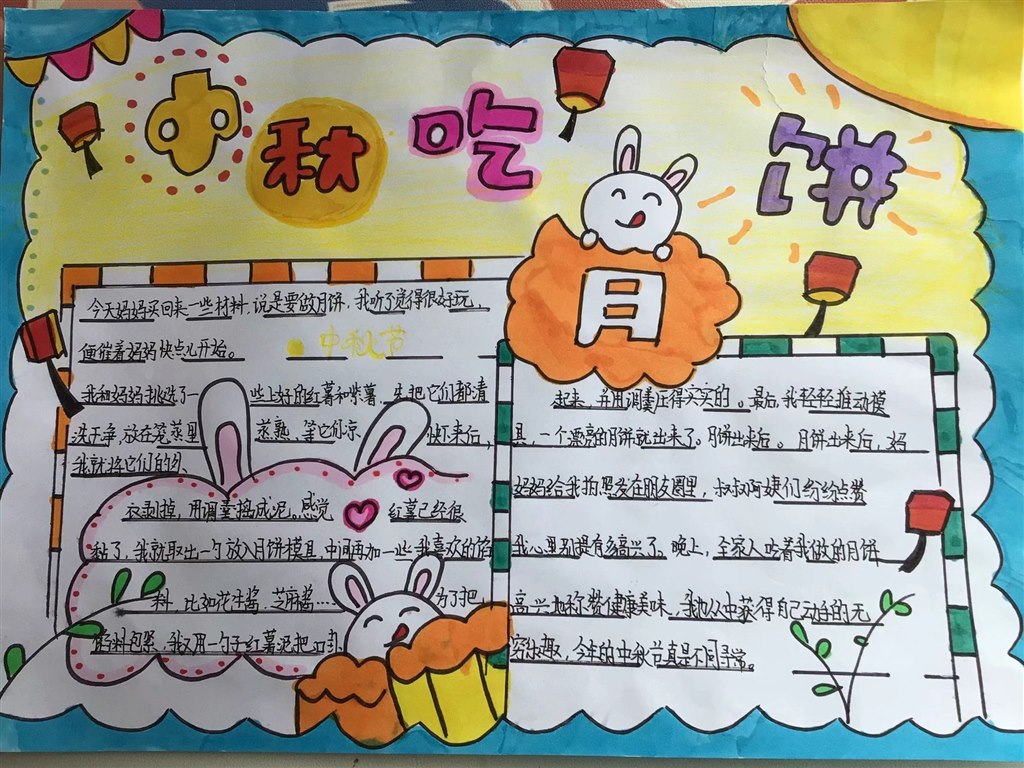 中秋吃月饼
今天妈妈买回来一些材料，说是要做月饼，我听了觉得很好玩，
便催着妈妈快点儿开始。
中秋节
我和妈妈挑选了一些上好的红薯和紫薯，先把它们都清
洗干净，放在笼蒸里蒸熟，等它们凉下来后，
我就将它们的外
衣剥掉，用调羹捣成泥。感觉红薯已经很
黏了，我就取出一勺放入月饼模具，中间再加一些我喜欢的馅
料，比如花生酱，芝麻酱……为了把
馅料包紧，我又用一勺子红薯泥把口封
起来，并用调羹压得实实的。最后，我轻轻推动模
具，一个漂亮的月饼就出来了。月饼出来后。月饼出来后，妈
妈妈给我拍照发在朋友圈里，叔叔阿姨们纷纷点赞
我心里别提有多高兴了。晚上，全家人吃着我做的月饼
高兴地称赞健康美味，我也从中获得自己动手的无
穷乐趣，今年的中秋节真是不同寻常。